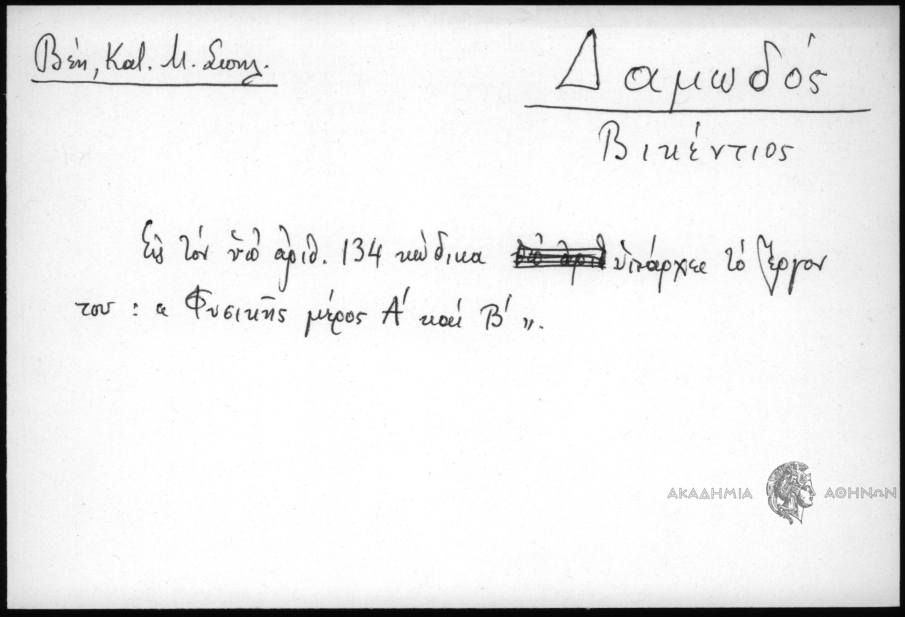 Βέη, Κατ. Μ.
Δαμωδός
Βικέντιος
Εἰς τόν ὑπό ἀριθ. 134 κώδικα ὑπάρχει τό ἔργον
του : « Φυσικῆς μέρος Α΄ καί Β΄ ».
ΑΚΑΔΗΜΙΑ ΑΘΗΝΩΝ